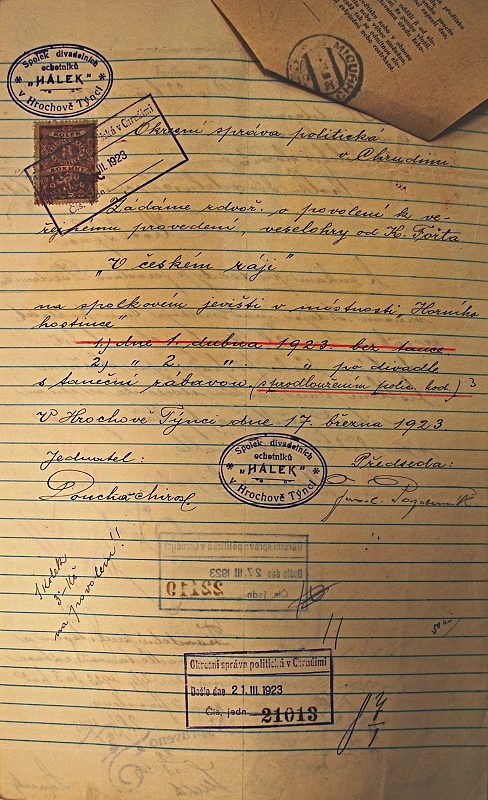 Spolek divadelních
ochotníků
* "HÁLEK" *
v Hrochově Týnci
MICHDR
Okresní správa politická
v Chrudimi
ká v Chrudimi
III. 1923
Čís. jedn.
Žádáme zdvoř. o povolení k ve-
řejnému provedení, veselohry od K. Fořta
"V českém ráji"
na spolkovém jevišti v místnosti "Horního
hostince"
1.) dne 1. dubna 1923. bez tance
2.) " 2. " " po divadle
s taneční zábavou (s prodloužením polic. hod.)
V Hrochově Týnci dne 17. března 1923
Jednatel: Předseda:
Spolek divadelních
ochotníků
* "HÁLEK" *
v Hrochově Týnci
1 kolek
3 Kč
na povolení!!
Okresní správa politická v Chrudimi
Došlo dne 27. III. 1923
Čís. jedn. 22119
Okresní správa politická v Chrudimi
Došlo dne 21. III. 1923
Čís. jedn. 21013